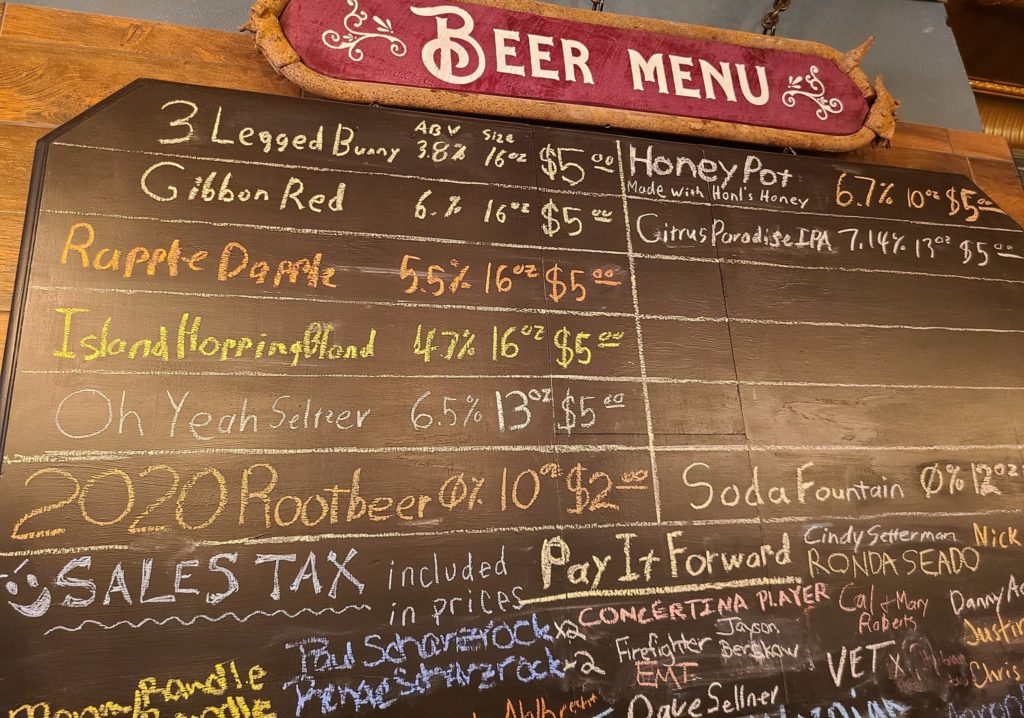 BEER MENU
ABV Size
3 Legged Bunny 3.8% 16oz $5.00
Gibbon Red 6.% 16oz $5.00
Rapple Dapple 5.5% 16oz $5.00
Island Hopping Blond 4.7% 16oz $5.00
Oh Yeah Seltzer 6.5% 13oz $5.00
2020 Rootbeer 0% 10oz $2.00
Honey Pot 6.7% 10oz $5.00
Made with Honl's Honey
Citrus Paradise IPA 7.14% 13oz $5.00
Soda Fountain 0% 12oz
SALES TAX included
in prices
Pay It Forward
Cindy Setterman Nick
RONDA SEADO
CONCERTINA PLAYER
Cal + Mary
Roberts
Danny
Justin
Paul Scharzrock x2
Renae x2
Firefighter
EMT
Jayson
VET x
Chris
Dave Sellner
Randle